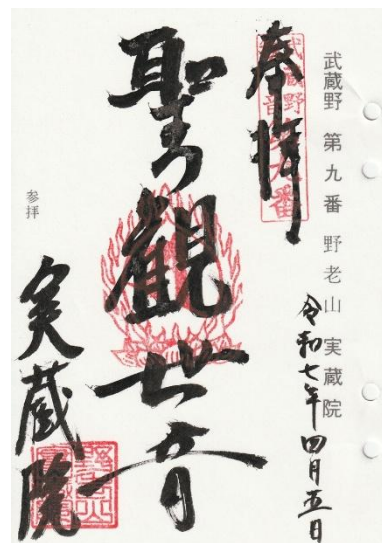 武蔵野 第九番 野老山 実蔵院
令和七年四月五日
奉拝
武蔵野
観音
第九番
聖観世音
参拝
実蔵院